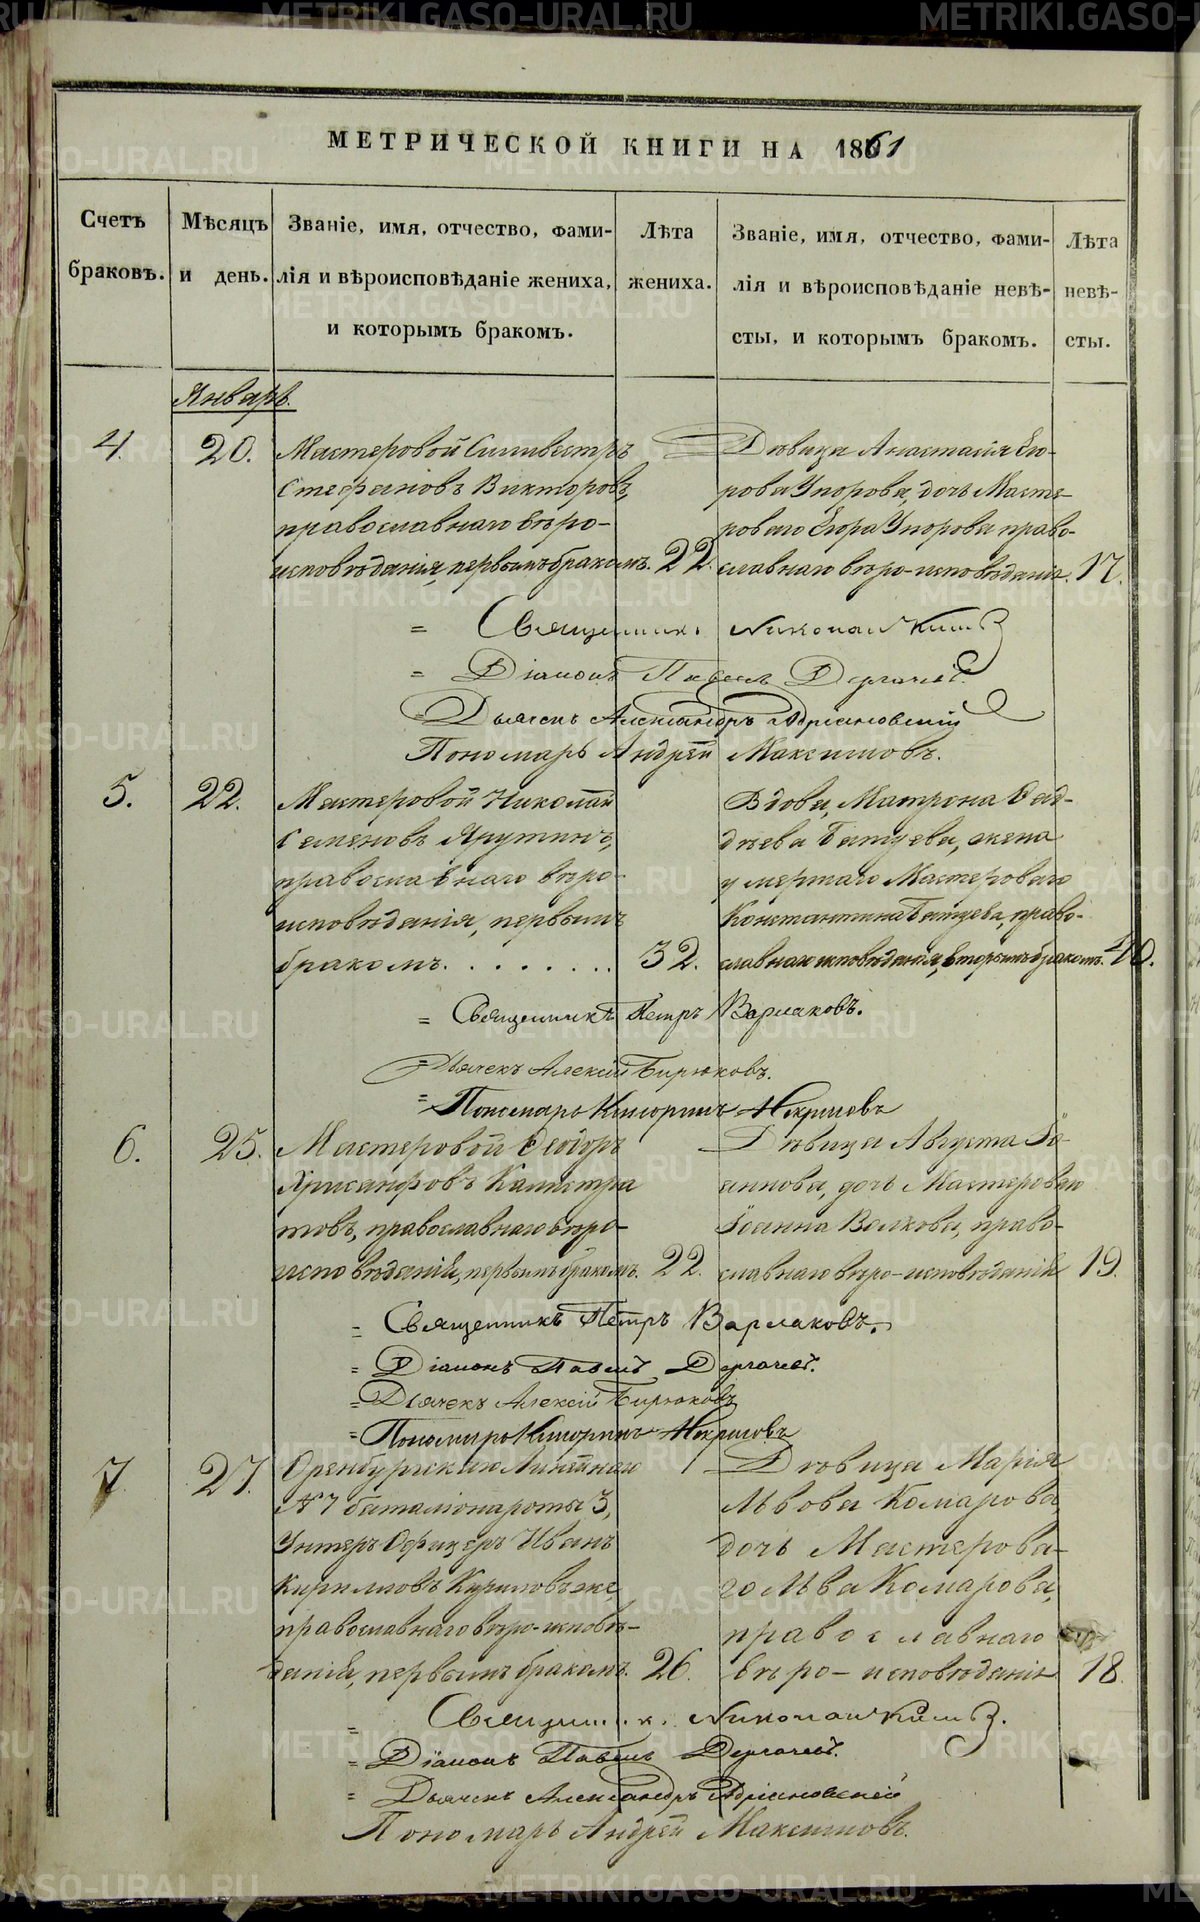 МЕТРИЧЕСКОЙ КНИГИ НА 1861
Счетъ браковъ.
Мѣсяцъ и день.
Званіе, имя, отчество, фами-
лія и вѣроисповѣданіе жениха,
и которымъ бракомъ.
Лѣта
жениха.
Званіе, имя, отчество, фами-
лія и вѣроисповѣданіе невѣ-
сты, и которымъ бракомъ.
Лѣта
невѣ-
сты.
Январь.
4. 20.
Мастеровой Силивестръ
Стефановъ Викторовъ,
православнаго вѣро-
исповѣданія, первымъ бракомъ. 22.
Дѣвица Анастасія Его-
рова Упорова, дочь Масте-
роваго Егора Упорова право-
славнаго вѣро-исповѣданія. 17.
= Священникъ Николай
= Діаконъ Павелъ Дергачевъ.
= Дьячекъ Александръ Адріановскій
Пономарь Андрей Максимовъ.
5. 22.
Мастеровой Николай
Семеновъ Ярутинъ,
православнаго вѣро-
исповѣданія, первымъ
бракомъ. . . . . . . . 32.
Вдова, Матрона Фад-
дѣева Батуева, жена
умершаго Мастероваго
Константина Батуева, право-
славнаго исповѣданія, вторымъ бракомъ. 40.
= Священникъ Петръ Варлаковъ.
= Дьячекъ Алексій Бирюковъ.
= Пономарь Некрасовъ
6. 25.
Мастеровой Ѳедоръ
Хрисанфовъ Калистра
товъ, православнаго вѣро-
исповѣданія, первымъ бракомъ. 22.
Дѣвица Августа Іо-
аннова, дочь Мастероваго
Іоанна Волкова, право-
славнаго вѣро-исповѣданія 19.
= Священникъ Петръ Варлаковъ.
= Діаконъ Павелъ Дергачевъ.
= Дьячекъ Алексій Бирюковъ
= Пономарь Некрасовъ
7. 27.
Оренбургскаго Линейнаго
№ 7 баталіона роты 3,
Унтеръ Офицеръ Иванъ
Кирилловъ Кириловъ же
православнаго вѣро-исповѣ-
данія, первымъ бракомъ. 26.
Дѣвица Марія
Львова Комарова,
дочь Мастерова-
го Льва Комарова,
православнаго
вѣро-исповѣданія 18.
= Священникъ Николай
= Діаконъ Павелъ Дергачевъ.
= Дьячекъ Александръ Адріановскій
Пономарь Андрей Максимовъ.
METRIKI.GASO-URAL.RU